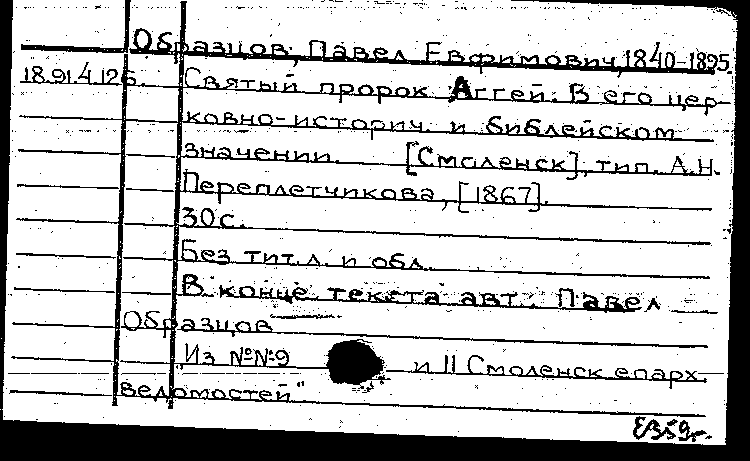 Образцов, Павел Евфимович, 1840-1895.
18.91.4.126. Святый пророк Аггей. В его цер-
ковно-историч. и библейском
значении. [Смоленск], тип. А.Н.
Переплетчикова, [1867].
30с.
Без тит.л. и обл.
В конце текста авт.: Павел
Образцов
"Из №№9 и 11 Смоленск епарх.
ведомостей"